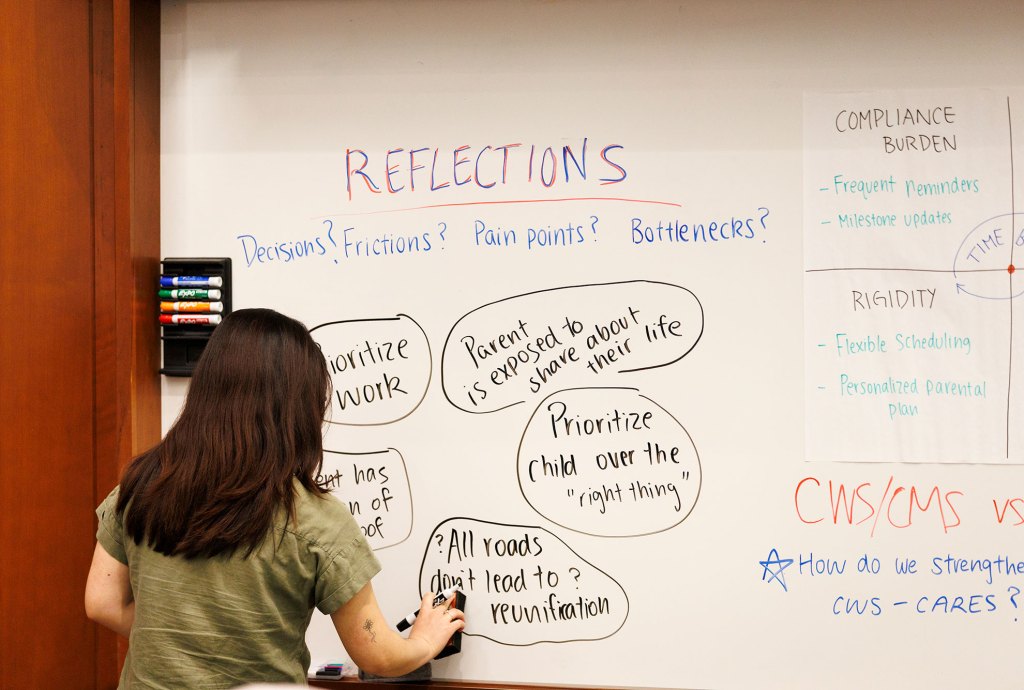 REFLECTIONS
Decisions? Frictions? Pain points? Bottlenecks?
ioritize
work
Parent
is exposed to
share about
their life
Prioritize
child over the
"right thing"
has
of
?All roads
don't lead to ?
reunification
COMPLIANCE
BURDEN
- Frequent reminders
- Milestone updates
TIME
RIGIDITY
- Flexible Scheduling
- Personalized parental
plan
CWS/CMS vs
How do we strengthe
CWS - CARES?
EXPO
EXPO
EXPO